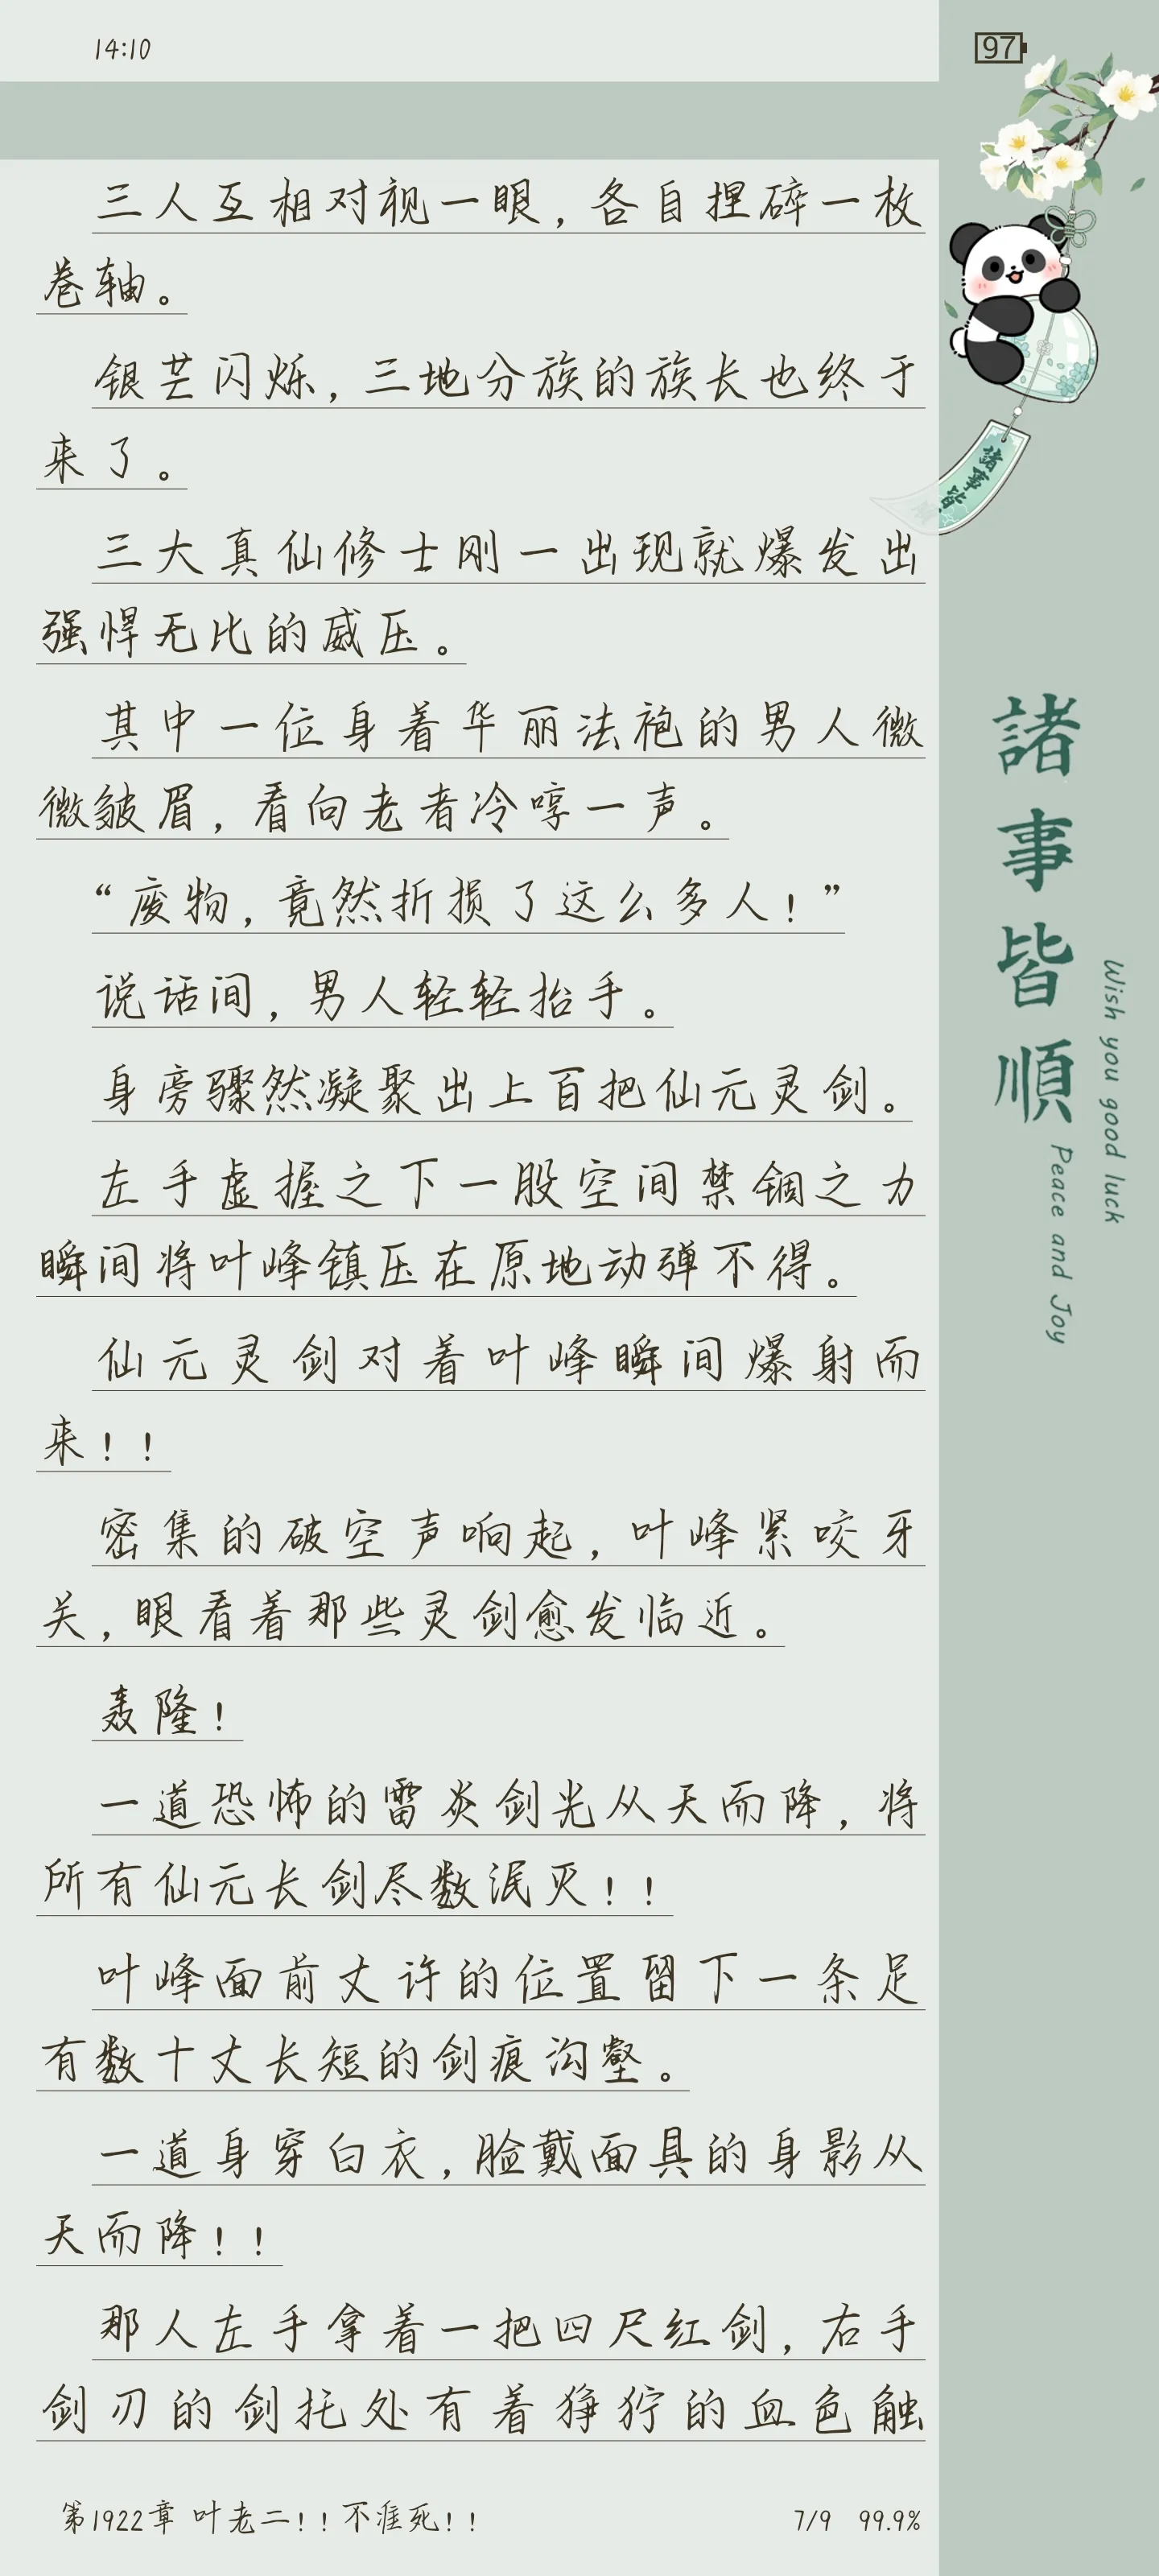 14:10
97
三人互相对视一眼，各自捏碎一枚
卷轴。
银芒闪烁，三地分族的族长也终于
来了。
三大真仙修士刚一出现就爆发出
强悍无比的威压。
其中一位身着华丽法袍的男人微
微皱眉，看向老者冷哼一声。
“废物，竟然折损了这么多人！”
说话间，男人轻轻抬手。
身旁骤然凝聚出上百把仙元灵剑。
左手虚握之下一股空间禁锢之力
瞬间将叶峰镇压在原地动弹不得。
仙元灵剑对着叶峰瞬间爆射而
来！！
密集的破空声响起，叶峰紧咬牙
关，眼看着那些灵剑愈发临近。
轰隆！
一道恐怖的雷炎剑光从天而降，将
所有仙元长剑尽数泯灭！！
叶峰面前丈许的位置留下一条足
有数十丈长短的剑痕沟壑。
一道身穿白衣，脸戴面具的身影从
天而降！！
那人左手拿着一把四尺红剑，右手
剑刃的剑托处有着狰狞的血色触
第1922章 叶老二！！不准死！！
7/9 99.9%
諸事皆
諸事皆順
Wish you good luck
Peace and Joy